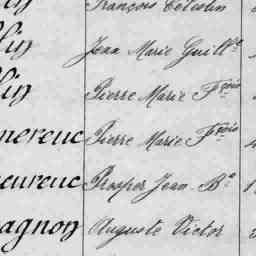 in François Célestin
lin Jean Marie Guill.e
lin Pierre Marie F.çois
nereuc Pierre Marie F.çois
eureuc Prosper Jean B.e
agnon Auguste Victor